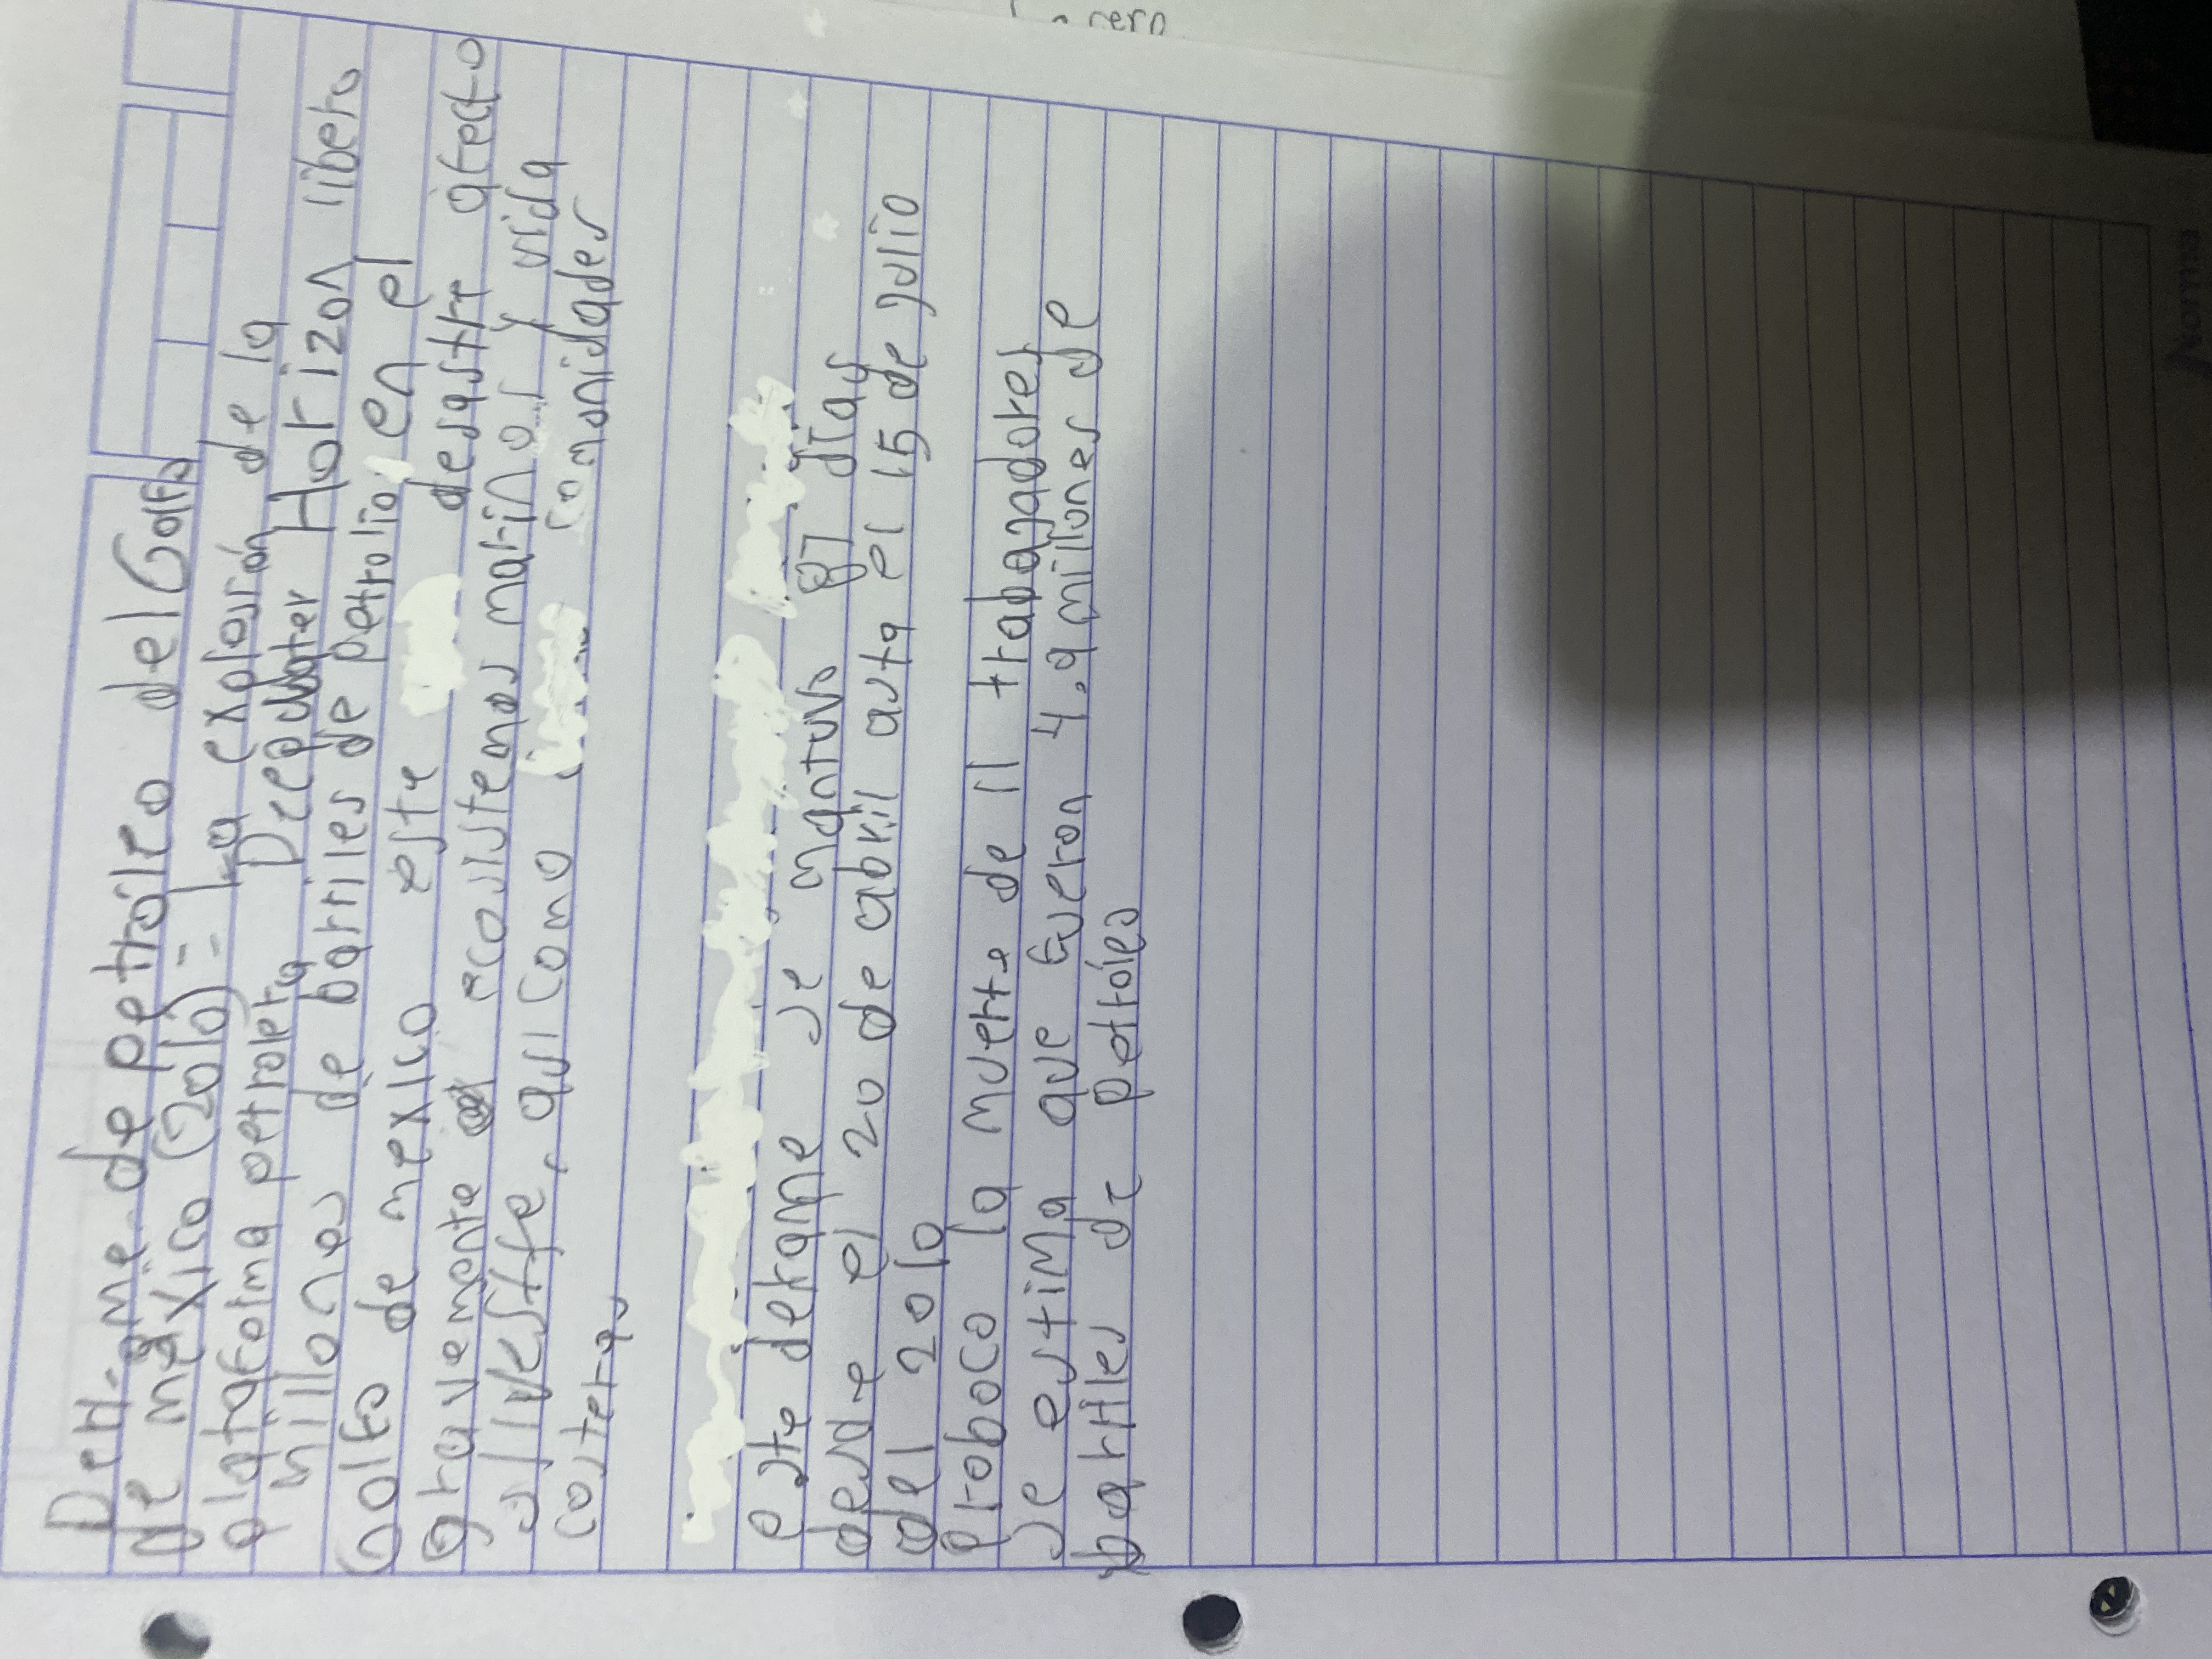 Derrame de petróleo del Golfo
de mexico (2010) = La explosión de la
plataforma petrolera Deepwater Horizon libero
millones de barriles de petrolio en el
Golfo de mexico este desastre afecto
gravemente ecosistemas marinos y vida
silvestre, asi como comunidades
costeras
este derrame se mantuvo 87 dias
desde el 20 de abril asta el 15 de julio
del 2010
Proboco la muerte de 11 trabajadores
se estima que fueron 4.9 millones de
barriles de petróleo
Norma